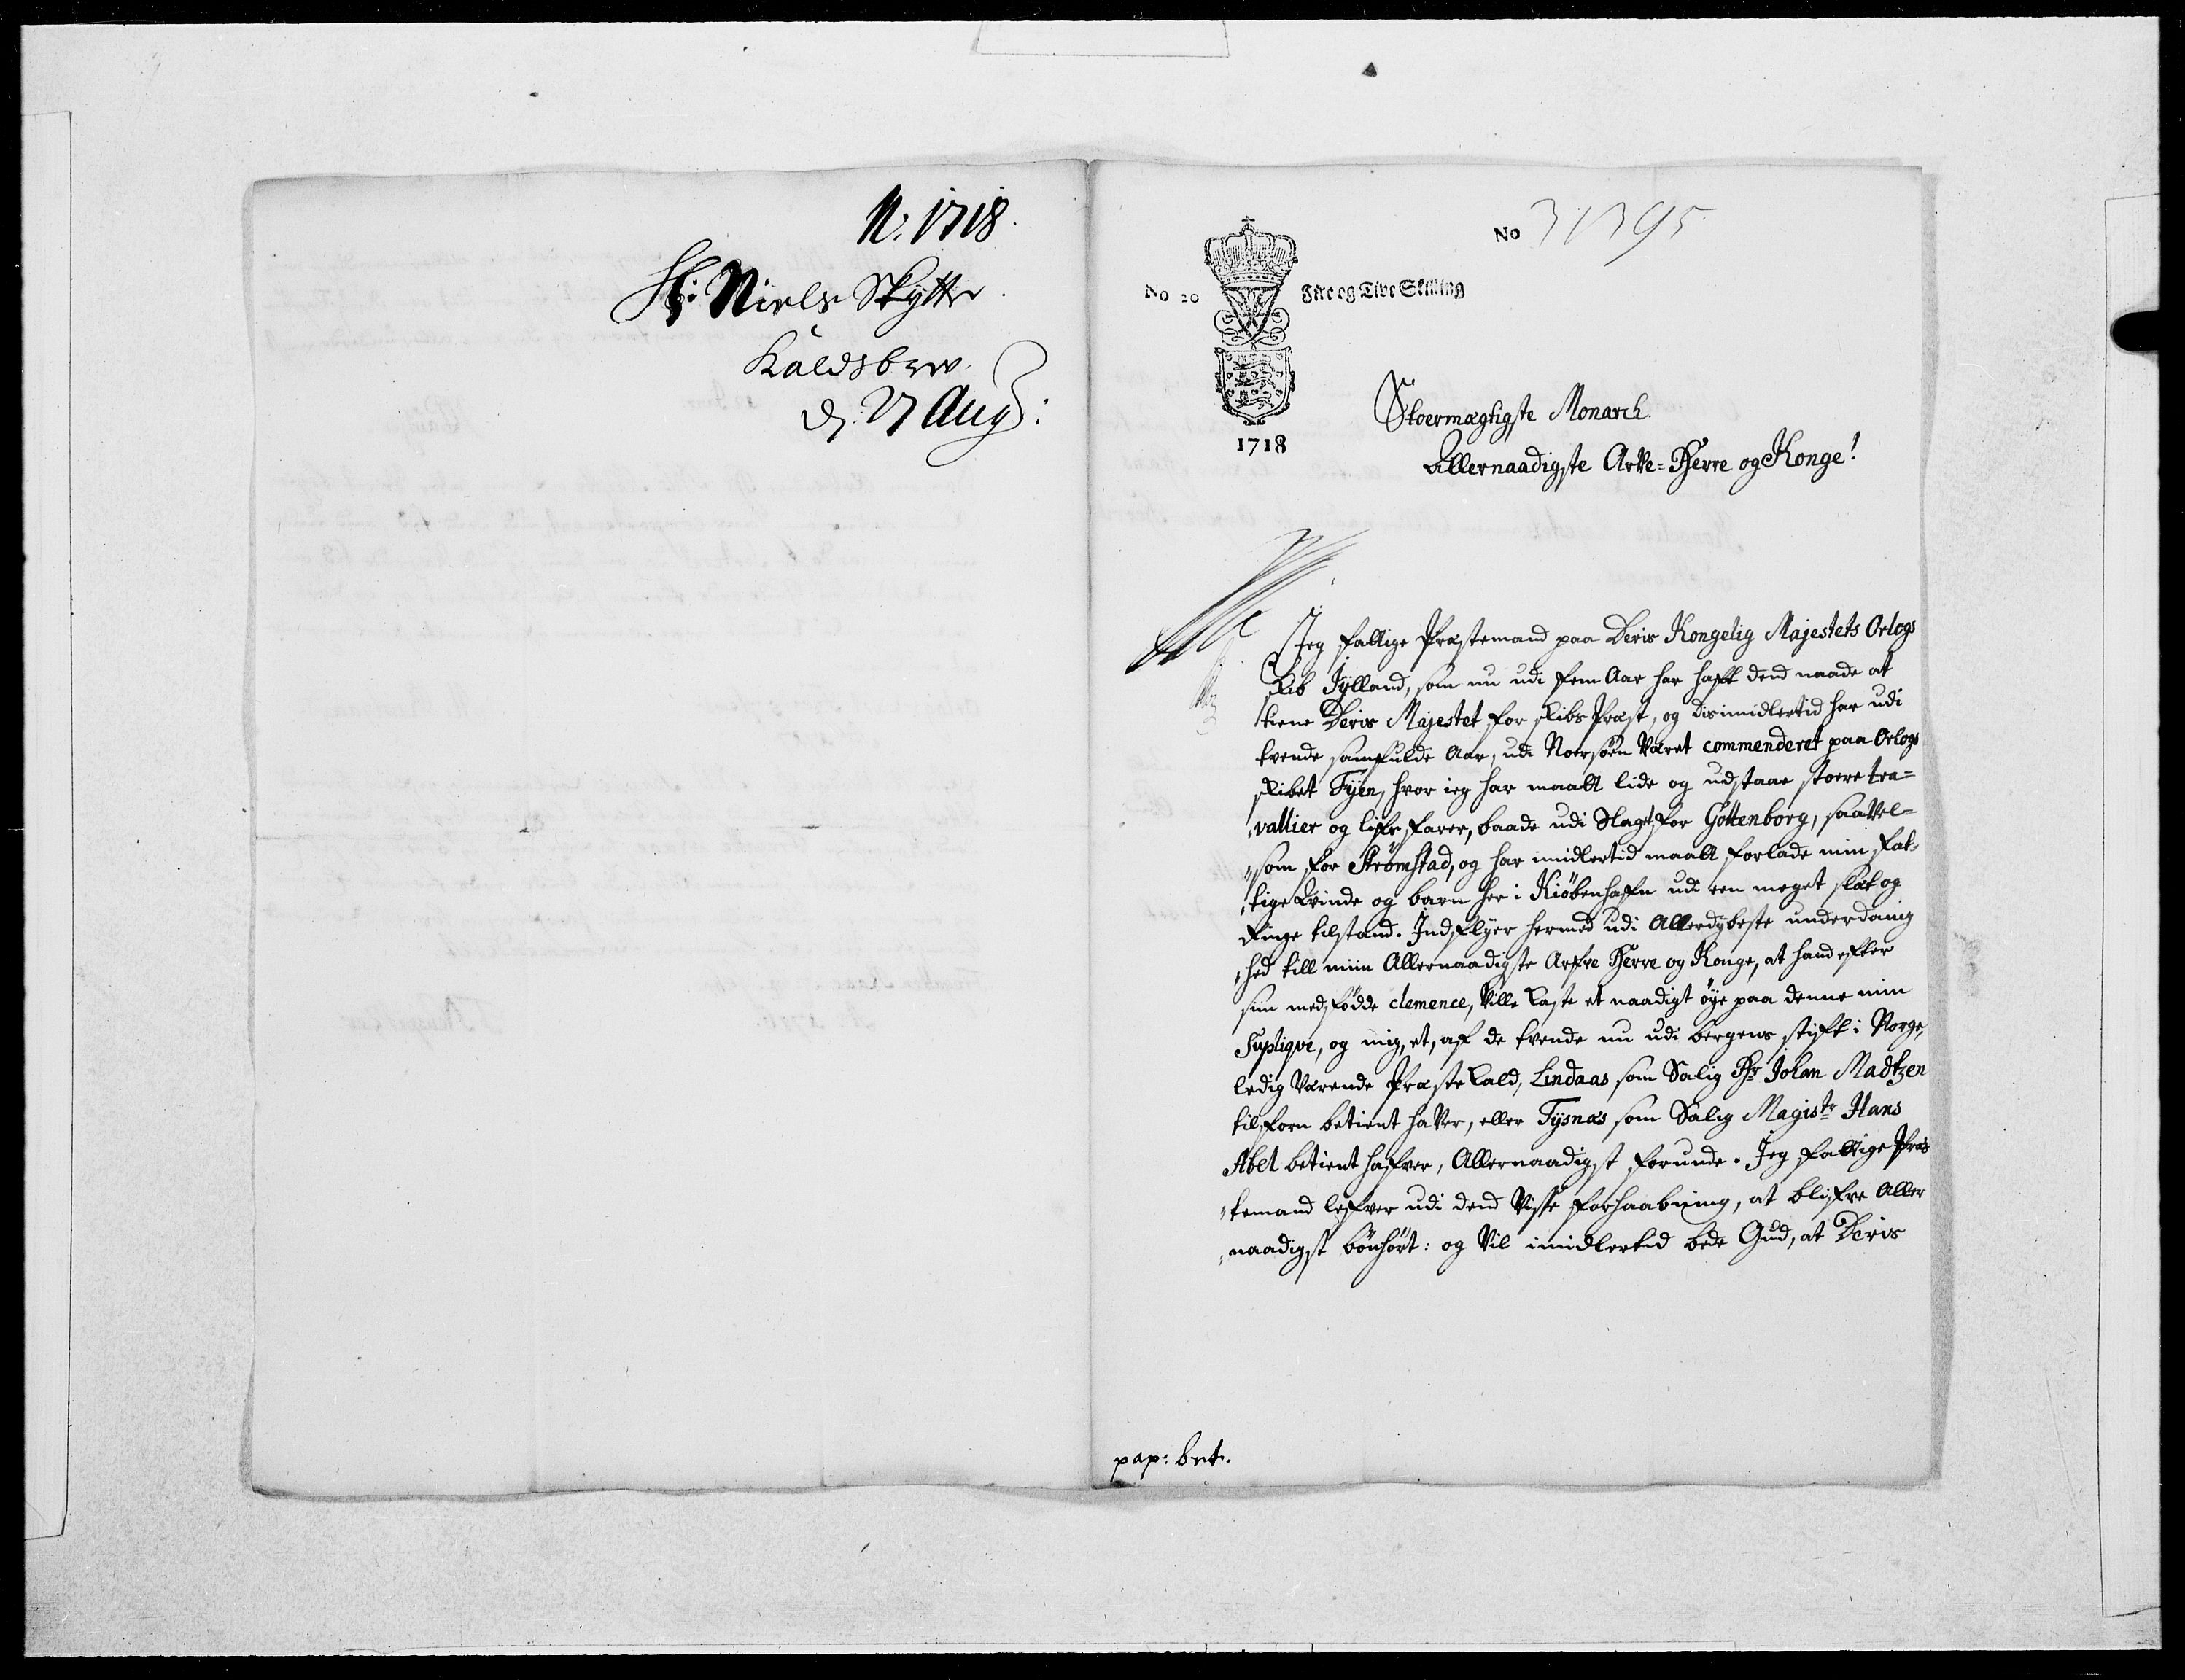 N. 1718.
Hr: Niels Skytte
Kaldsbrev.
d. 27 Aug:
No 31395
No 20 Fire og Tive Skilling
1718
Stoermægtigste Monarch
Allernaadigste Arve-Herre og Konge!
Jeg fattige Præstemand paa Deris Kongelig Majestets Orlogs
Skib Jylland, som nu udi fem Aar har hafft dend naade at
tiene Deris Majestet for skibs Præst, og disimidlertid har udi
tvende samfulde Aar, udi Norsøen Været commenderet paa Orlogs
skibet Fyen, hvor ieg har maatt lide og udstaae stoere tra=
vallier og lifs farer, baade udi Slaget for Gottenborg, saavel=
som for Strømstad, og har imidlertid maatt forlade min fat=
tige Qvinde og barn her i Kiøbenhafn udi een meget slæt og
Ringe tilstand. Indflyer hermed udi Allerdybeste underdanig
hed till miin Allernaadigste Arfve Herre og Konge, at hand efter
siin medfødde clemence, Ville Kaste et naadigt øye paa denne min
Supliqve, og mig, et, af de tvende nu udi bergens stift i Norge,
ledig Værende Præste Kald, Lindaas som Salig Hr Johan Madtzen
tilforn betient haver, eller Tysnæs som Salig Magistr Hans
Abel betient hafver, Allernaadigst forunde. Jeg fattige Præs
temand lefver udi dend Visse forhaabning, at blifve Aller
naadigst bønhørt: og Vil imidlertid bede Gud, at Deris
pap: bet.